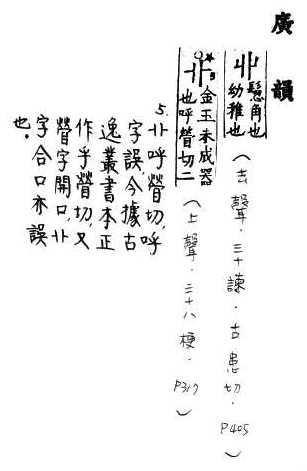 廣韻
丱 角也
幼稚也
(去聲.三十諫.古患切.P405)
卝5 金玉未成器
也呼營切二
(上聲.三十八梗.P317)
5.卝呼營切,呼
字誤,今據古
逸叢書本正
作乎營切,又
營字開口,卝
字合口亦誤
也.